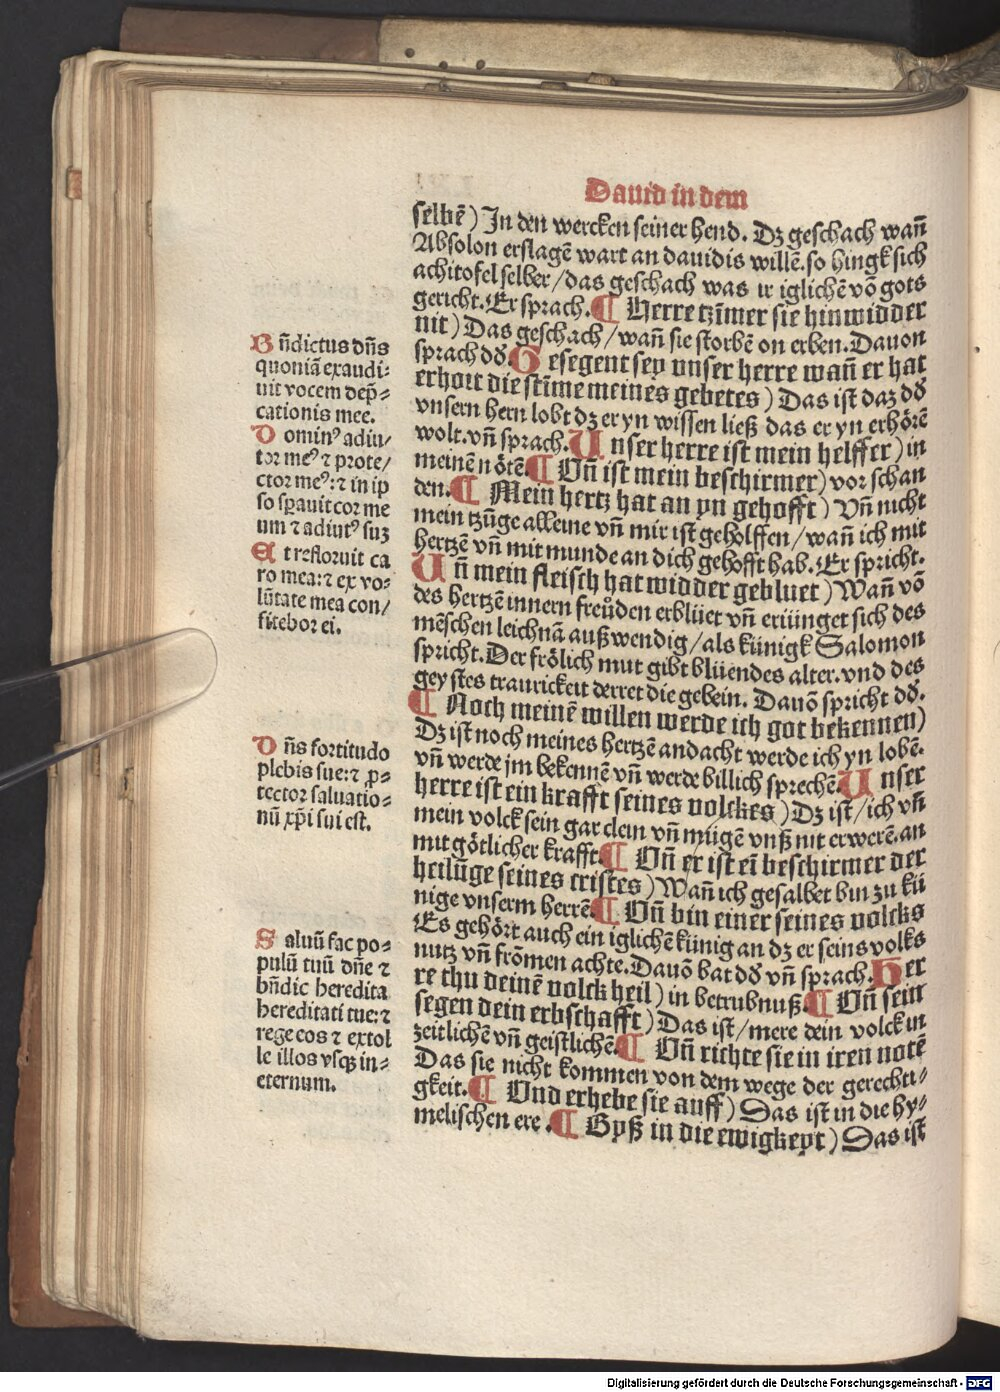 Dauid in dem
selbē) In den wercken seiner hend. Dz geschach wañ
Absolon erslagē wart an dauidis willē. so hingk sich
achitofel selber/das geschach was ir iglichē vō gots
gericht. Er sprach. ¶ Herre tzīmer sie hinwidder
nit) Das geschach/wañ sie storbē on erben. Dauon
sprach dō. Gesegent sey vnser herre wañ er hat
erhort die stīme meines gebetes) Das ist daz dō
vnsern hern lobt dz er yn wissen ließ das er yn erhörē
wolt. vñ sprach. Unser herre ist mein helffer) in
meinē nötē. ¶ Vñ ist mein beschirmer) vor schan
den. ¶ Mein hertz hat an yn gehofft) Vñ nicht
mein tzūge alleine vñ mir ist geholffen/wañ ich mit
hertzē vñ mit munde an dich gehofft hab. Er spricht.
Uñ mein fleisch hat widder gebluet) Wañ vō
des hertzē innern freůden erblüet vñ erüünget sich des
mēschen leichnā außwendig/als künigk Salomon
spricht. Der frölich mut gibt blüendes alter. vnd des
geystes traurickeit derret die gebein. Dauō spricht dō.
¶ Noch meinē willen werde ich got bekennen)
Dz ist noch meines hertzē andacht werde ich yn lobē.
vñ werde jm bekennē vñ werde billich sprechē. Unser
herre ist ein krafft seines volckes) Dz ist/ich vñ
mein volck sein gar clein vñ mügē vnß nit erwerē. an
mit götlicher krafft. ¶ Vñ er ist eī beschirmer der
heilūge seines cristes) Wañ ich gesalbet bin zu kü
nige vnserm herrē. ¶ Vñ bin einer seines volcks
Es gehört auch ein iglichē künig an dz er seins volks
nutz vñ frōmen achte. Dauō bat dō vñ sprach. Her
re thu deinē volck heil) in betrubnuß. ¶ Vñ sein
segen dein erbschafft) Das ist/mere dein volck in
zeitlichē vñ geistlichē. ¶ Vñ richte sie in iren notē
Das sie nicht kommen von dem wege der gerechti⸗
gkeit. ¶ Vnd erhebe sie auff) Das ist in die hy⸗
melischen ere. ¶ Byß in die ewigkeyt) Das ist
Bñdictus dñs
quoniā exaudi⸗
uit vocem dep̄⸗
cationis mee.
Dominꝰ adiu/
tor meꝰ ⁊ prote/
ctor meꝰ: ⁊ in ip
so sꝑauit cor me
um ⁊ adiutꝰ suꝫ
Et refloruit ca
ro mea: ⁊ ex vo⸗
lūtate mea con/
fitebor ei.
Dñs fortitudo
plebis sue: ⁊ ꝓ⸗
tector saluatio⸗
nū xp̄i sui est.
Saluū fac po⸗
pulū tuū dñe ⁊
bñdic heredita
hereditati tue: ⁊
rege eos ⁊ extol
le illos vsqꝫ in⸗
eternum.
Digitalisierung gefördert durch die Deutsche Forschungsgemeinschaft - DFG